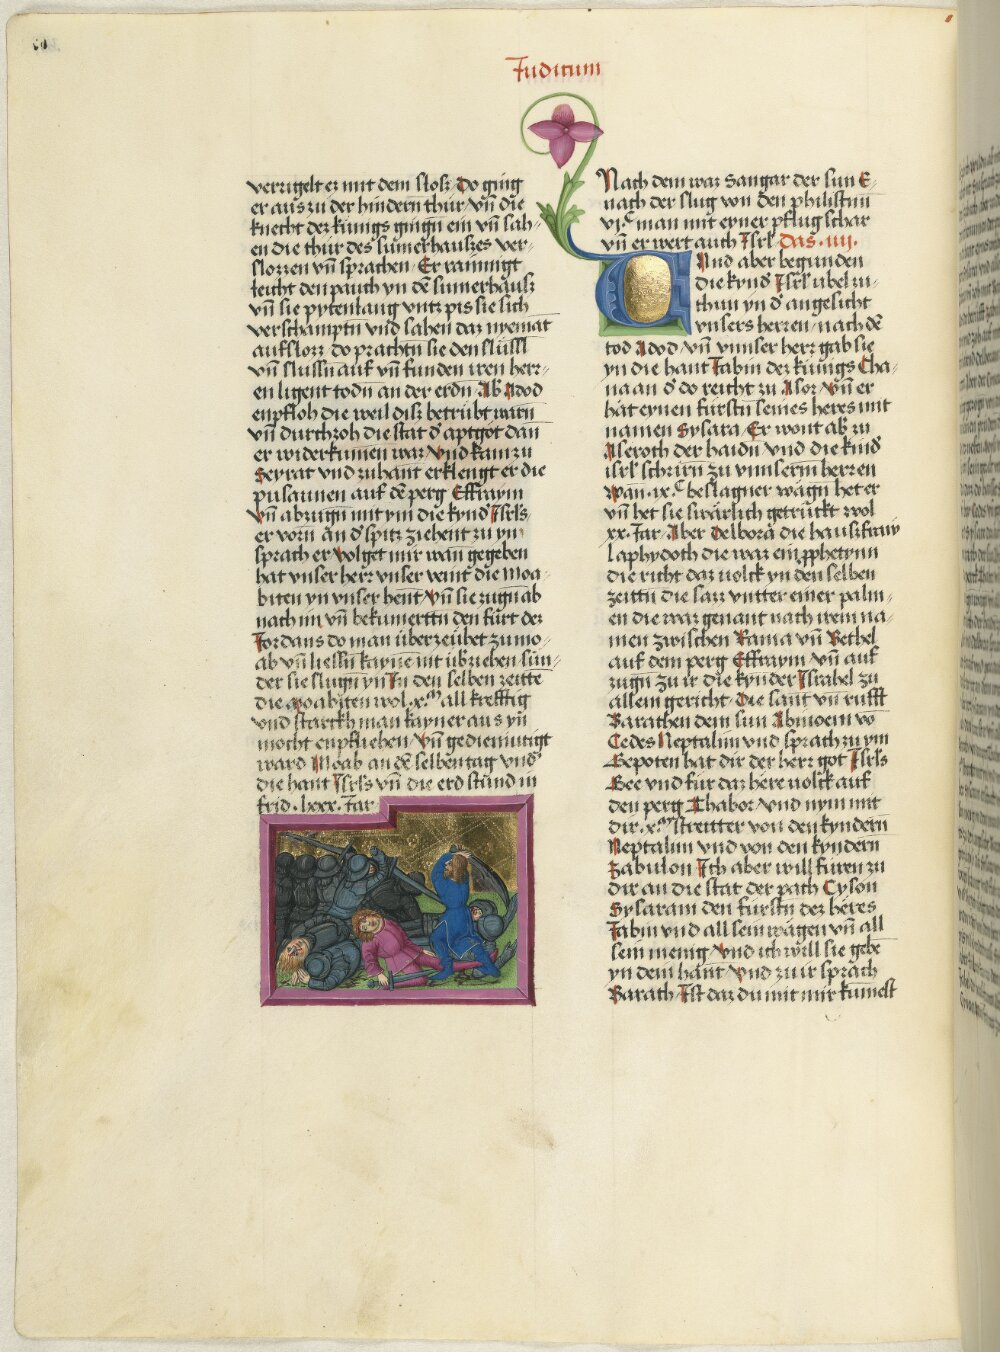 Juditum
verrigelt er mit dem slosz do ging
er aus zu der hindern thür vn̄ die
knecht dez kunigs gingn̄ ein vn̄ sah-
en die thür des sumerhauszes ver-
slozzen vn̄ sprachen Er rainnigt
leicht den pauch yn dē sumerhausz
vn̄ sie pytenlang vntz pis sie sich
verschamptn̄ vnd sahen daz nyemāt
aufslozz do prachtn̄ sie den slüssl
vn̄ slussn̄ auf vn̄ funden iren herr-
en ligent todn̄ an der erdn̄ Ab͛ Aod
enpfloh die weil disz betrübt warn̄
vn̄ durchzoh die stat d͛ aptgot dan
er widerkumen war vnd kam zu
Seyrat vnd zuhant erklengt er die
pusaunen auf dē perg Effraym
vn̄ abzugn̄ mit ym die kynd͛ Isrls
er vorn an d͛ spitz ziehent zu yn
sprach er volget mir wan gegeben
hat vnser herr vnser veint die moa-
biten yn vnser hent vn̄ sie zugn̄ ab
nach im vn̄ bekumertn̄ den fürt der
Jordans do man überzeübet zu mo-
ab vn̄ liessn̄ kayne nit üb͛ziehen sun-
der sie slugn̄ yn In den selben zeitte
die moabiten wol .x.ᵐ all krefftig
vnd starckh man kayner aus yn̄
mocht enpfliehen vn̄ gediemutigt
ward Moab an dē selben tag vnd͛
die hant Isrls vn̄ die erd stund in
frid . lxxx . Jar
Nach dem waz Sangar der sun E-
nach der slug von den philistin̄
vi.ᶜ man mit eyner pflug schar
vn̄ er wert auch Isrl das . iiii .
Und aber begunden
die kynd͛ Isrl͛ übel zu-
thun yn d͛ angesicht
vnsers herren nach dē
tod Aod vn̄ vnnser herr gab sie
yn die hant Jabin dez kunigs Cha-
naan d͛ do reicht zu Asor vn̄ er
hat eynen fürstn̄ seines heres mit
namen Sysara Er wont ab͛ zu
Aseroth der haidn̄ vnd die kind͛
isrl͛ schrirn̄ zu vnnserm herren
wan .ix.ᶜ beslagner wägn̄ het er
vn̄ het sie swärlich getruckt wol
xx. Jar Aber Delbora die hauszfraw
Laphydoth die waz ein pphetynn
die richt daz volck yn den selben
zeittn̄ die sazz vntter einer palm-
en die waz genant nach irem na-
men zwischen Rama vn̄ Bethel
auf dem perg Effraym vn̄ auf
zugn̄ zu ir die kynder Israhel zu
allem gericht Die sant vn̄ rufft
Barachen dem sun Abinoem vo
Cedes Neptalim vnd sprach zu ym
Gepoten hat dir der herr got Isrls
Gee vnd für daz here volck auf
den perg Thabor vnd nym mit
dir .x.ᵐ streitter von den kyndern
Neptalim vnd von den kyndern
Zabulon Ich aber will füren zu
dir an die stat der path Cyson
Sysaram den fürstn̄ dez heres
Jabin vnd all sein wägen vn̄ all
sein menig vnd ich will sie gebē
yn dein hant vnd zu ir sprach
Barath Ist daz du mit mir kumest